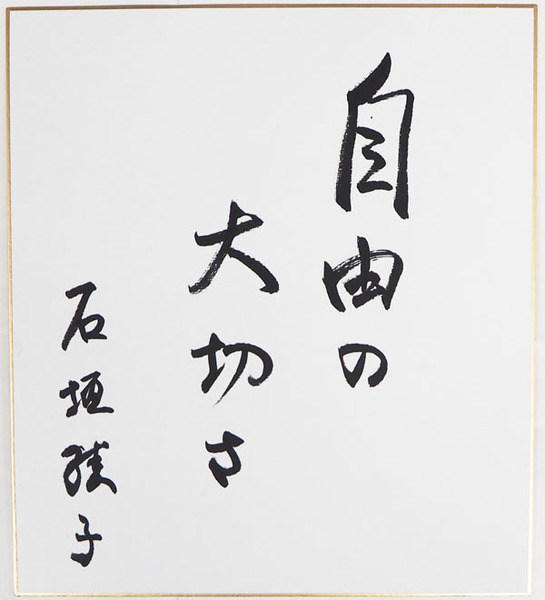 自由の
大切さ
石垣綾子